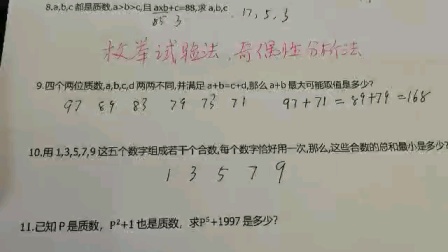 8.a,b,c 都是质数,a>b>c,且 axb+c=88,求 a,b,c
85 3
17, 5, 3
枚举试验法、奇偶性分析法
9.四个两位质数,a,b,c,d 两两不同,并满足 a+b=c+d,那么 a+b 最大可能取值是多少?
97 89 83 79 73 71 97+71=89+79=168
10.用 1,3,5,7,9 这五个数字组成若干个合数,每个数字恰好用一次,那么,这些合数的总和最小是多少?
1 3 5 7 9
11.已知 P 是质数，P²+1 也是质数，求P⁵+1997 是多少?